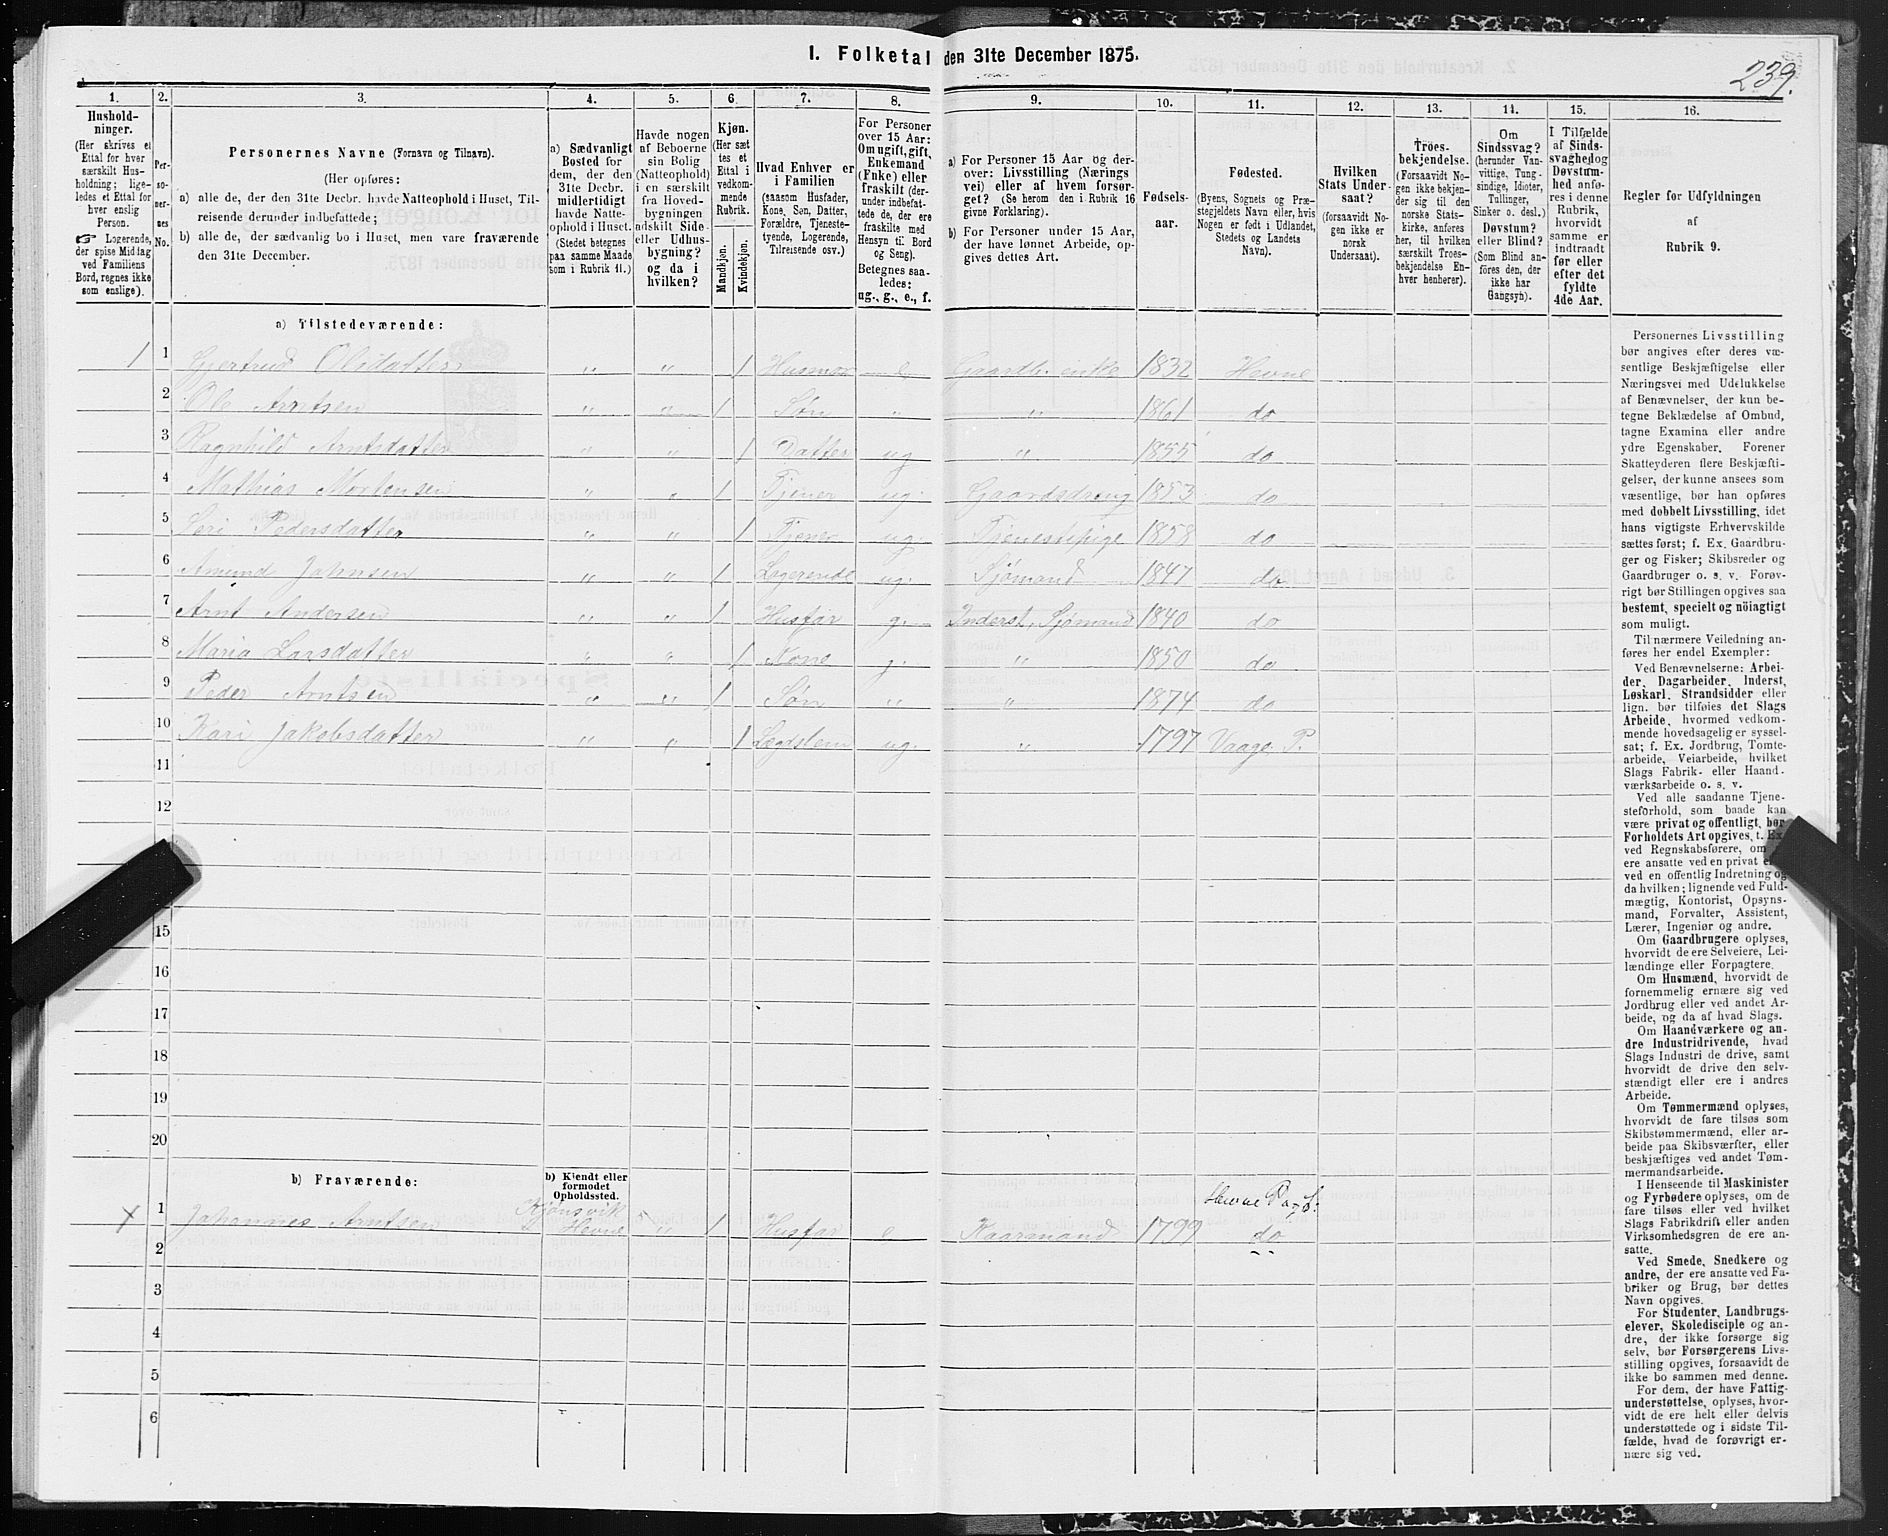 I. Folketal den 31te December 1875.
239.
1.
2.
3.
4.
5.
6.
7.
8.
9.
10.
11.
12.
13.
14.
15.
16.
Hushold-
ninger.
(Her skrives et
Ettal for hver
særskilt Hus-
holdning; lige-
ledes et Ettal for
hver enslig
Person.
☞ Logerende,
der spise Middag
ved Familiens
Bord, regnes ikke
som enslige).
Per-
so-
ner-
nes
No.
Personernes Navne (Fornavn og Tilnavn).
(Her opføres:
a) alle de, der den 31te Decbr. havde Natteophold i Huset, Til-
reisende derunder indbefattede;
b) alle de, der sædvanlig bo i Huset, men vare fraværende
den 31te December.
a) Sædvanligt
Bosted for
dem, der den
31te Decbr.
midlertidigt
havde Natte-
ophold i Huset.
(Stedet betegnes
paa samme Maade
som i Rubrik 11.)
Havde nogen
af Beboerne
sin Bolig
(Natteophold)
i en særskilt
fra Hoved-
bygningen
adskilt Side-
eller Udhus-
bygning?
og da i
hvilken?
Kjøn.
(Her sæt
tes et
Ettal i
vedkom-
mende
Rubrik.
Mandkjøn.
Kvindekjøn.
Hvad Enhver er
i Familien
(saasom Husfader,
Kone, Søn, Datter,
Forældre, Tjeneste-
tyende, Logerende,
Tilreisende osv.)
For Personer
over 15 Aar:
Om ugift, gift,
Enkemand
(Enke) eller
fraskilt (der-
under indbefat-
tede de, der ere
fraskilte med
Hensyn til Bord
og Seng).
Betegnes saa-
ledes:
ug., g., e., f.
a) For Personer 15 Aar og der-
over: Livsstilling (Nærings
vei) eller af hvem forsør-
get? (Se herom den i Rubrik 16
givne Forklaring).
b) For Personer under 15 Aar,
der have lønnet Arbeide, op-
gives dettes Art.
Fødsels-
aar.
Fødested.
(Byens, Sognets og Præ-
stegjeldets Navn eller, hvis
Nogen er født i Udlandet,
Stedets og Landets
Navn).
Hvilken
Stats Under-
saat?
(forsaavidt No-
gen ikke er
norsk
Undersaat).
Troes-
bekjendelse.
(Forsaavidt No-
gen ikke bekjen-
der sig til den
norske Stats-
kirke, anføres
her, til hvilken
særskilt Troes-
bekjendelse En-
hver henhører).
Om
Sindssvag?
(herunder Van-
vittige, Tung-
sindige, Idioter,
Sinker o. desl.)
Døvstum?
eller Blind?
(Som Blind an-
føres den, der
ikke har
Gangsyn).
I Tilfælde
af Sinds-
svaghed og
Døvstum-
hed anfø-
res i denne
Rubrik,
hvorvidt
samme er
indtraadt
før eller
efter det
fyldte
4de Aar.
Regler for Udfyldningen
af
Rubrik 9.
a) Tilstedeværende:
1 1 Gjertrud Olsdatter " " 1 Husmor e Gaardb. enke 1832 Hevne
2 Ole Arntsen " " 1 Søn " " 1861 do
3 Ragnhild Arntsdatter " " 1 Datter ug " 1855 do
4 Mathias Mortensen " " 1 Tjener ug. Gaardsdreng 1853 do
5 Seri Pedersdatter " " 1 Tjener ug. Tjenestepige 1858 do
6 Amund Johnsen " " 1 Logerende ug. Sjømand 1847 do
7 Arnt Andersen " " 1 Husfar g. Inderst, Sjømand 1840 do
8 Maria Larsdatter " " 1 Kone g. " 1850 do
9 Peder Arntsen " " 1 Søn " " 1874 do
10 Kari Jakobsdatter " " 1 Lægdslem ug. " 1797 Vaage P.
11
12
15
16
17
18
19
20
b) Fraværende:
b) Kjendt eller
formodet
Opholdssted.
Hevne
1 Johannes Arntsen Kjønsvik Hevne " 1 Husfar e Kaarmand 1799 do
2
3
4
5
6
Personernes Livsstilling
bør angives efter deres væ-
sentlige Beskjæftigelse eller
Næringsvei med Udelukkelse
af Benævnelser, der kun be-
tegne Beklædelse af Ombud,
tagne Examina eller andre
ydre Egenskaber. Forener
Skatteyderen flere Beskjæfti-
gelser, der kunne ansees som
væsentlige, bør han opføres
med dobbelt Livsstilling, idet
hans vigtigste Erhvervskilde
sættes først; f. Ex. Gaardbru-
ger og Fisker; Skibsreder og
Gaardbruger o. s. v. Forøv-
rigt bør Stillingen opgives saa
bestemt, specielt og nöiagtigt
som muligt.
Til nærmere Veiledning an-
føres her endel Exempler:
Ved Benævnelserne: Arbei-
der, Dagarbeider, Inderst,
Løskarl, Strandsidder eller
lign. bør tilføies det Slags
Arbeide, hvormed vedkom-
mende hovedsagelig er syssel-
sat; f. Ex. Jordbrug, Tomte-
arbeide, Veiarbeide, hvilket
Slags Fabrik- eller Haand-
værksarbeide o. s. v.
Ved alle saadanne Tjene-
steforhold, som baade kan
være privat og offentligt, bør
Forholdets Art opgives, t. Ex.
ved Regnskabsførere, om
ere ansatte ved en privat
ved en offentlig Indretning og
da hvilken; lignende ved Fuld-
mægtig, Kontorist, Opsyns-
mand, Forvalter, Assistent,
Lærer, Ingeniør og andre.
Om Gaardbrugere oplyses,
hvorvidt de ere Selveiere, Lei-
lændinge eller Forpagtere.
Om Husmænd, hvorvidt de
fornemmelig ernære sig ved
Jordbrug eller ved andet Ar-
beide, og da af hvad Slags.
Om Haandværkere og an-
dre Industridrivende, hvad
Slags Industri de drive, samt
hvorvidt de drive den selv-
stændigt eller ere i andres
Arbeide.
Om Tømmermænd oplyses,
hvorvidt de fare tilsøs som
Skibstømmermænd, eller ar-
beide paa Skibsværfter, eller
beskjæftiges ved andet Tøm-
mermandsarbeide.
I Henseende til Maskinister
og Fyrbødere oplyses, om de
fare tilsøs eller ved hvilket
Slags Fabrikdrift eller anden
Virksomhedsgren de ere an-
satte.
Ved Smede, Snedkere og
andre, der ere ansatte ved Fa-
briker og Brug, bør dettes
Navn opgives.
For Studenter, Landbrugs-
elever, Skoledisciple og an-
dre, der ikke forsørge sig
selv, bør Forsørgerens Livs-
stilling opgives, forsaavidt de
ikke bo sammen med denne.
For dem, der have Fattig-
understøttelse, oplyses, hvor-
vidt de ere helt eller delvis
understøttede og i sidste Til-
fælde, hvad de forøvrigt er-
nære sig ved.